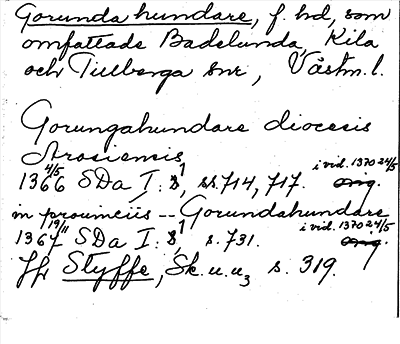 Gorunda hundare, f. hd, som
omfattade Badelunda, Kila
och Tillberga snr, Västm. l.
Gorungahundare diocesis
Arosiensis
1366 4/5 SDa I: 1, ss. 714, 717. i vid. 1370 24/5 orig.
in prouinciis -- Gorundahundare
1367 19/11 SDa I: 1, s. 731. i vid. 1370 24/5 orig.
Jfr Styffe, Sk. u. u3 s. 319.